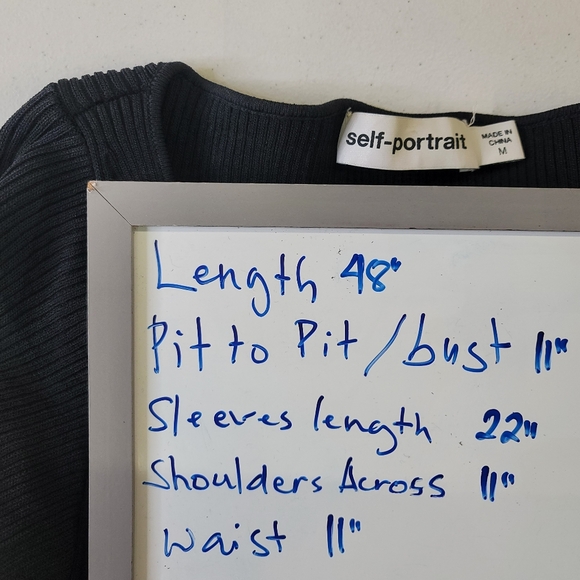 self-portrait
MADE IN
CHINA
M
Length 48"
Pit to Pit / bust 11"
Sleeves length 22"
Shoulders Across 11"
waist 11"